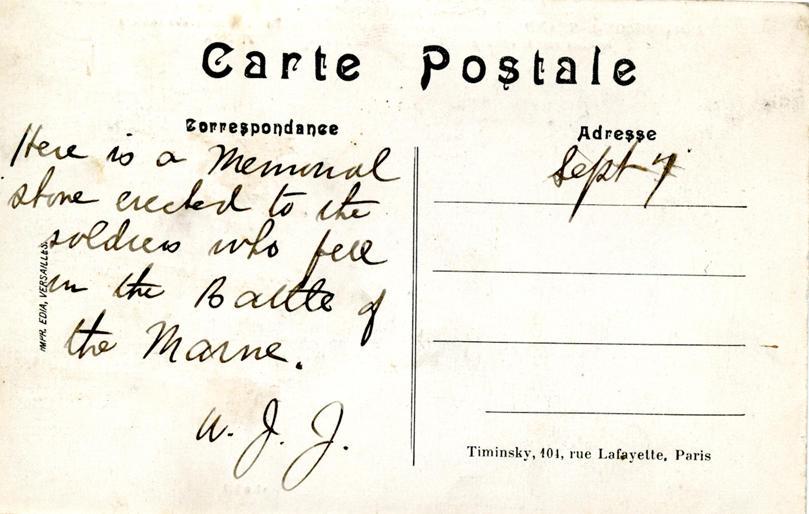 Carte Postale
Correspondance
Adresse
Here is a Memorial
stone erected to the
soldiers who fell
in the Battle of
the Marne.
W. J. J.
Sept 7
IMPR. EDIA, VERSAILLES.
Timinsky, 101, rue Lafayette, Paris